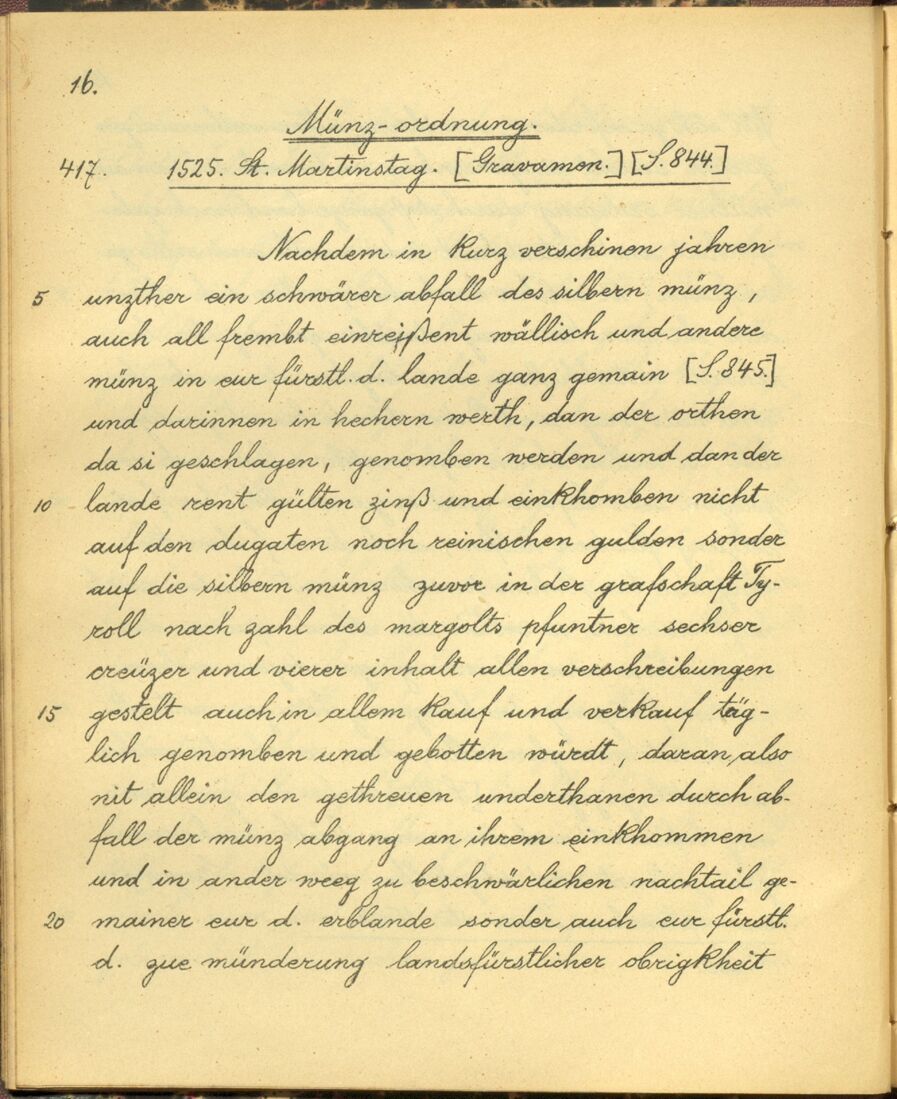 16.
Münz-ordnung.
417. 1525. St. Martinstag. [Gravamen.] [S. 844.]
Nachdem in kurz verschinen jahren
5 unzther ein schwärer abfall des silbern münz,
auch all frembt einreißent wällisch und andere
münz in eur fürstl. d. lande ganz gemain [S. 845.]
und darinnen in hechern werth, dan der orthen
da si geschlagen, genomben werden und dan der
10 lande rent gülten zinß und einkhomben nicht
auf den dugaten noch reinischen gulden sonder
auf die silbern münz zuvor in der grafschaft Ty-
roll nach zahl des margolts pfuntner sechser
creüzer und vierer inhalt allen verschreibungen
15 gestelt auch in allem kauf und verkauf täg-
lich genomben und gebotten würdt, daran also
nit allein den gethreuen underthanen durch ab-
fall der münz abgang an ihrem einkhommen
und in ander weeg zu beschwärlichen nachtail ge-
20 mainer eur d. erblande sonder auch eur fürstl.
d. zue münderung landsfürstlicher obrigkheit